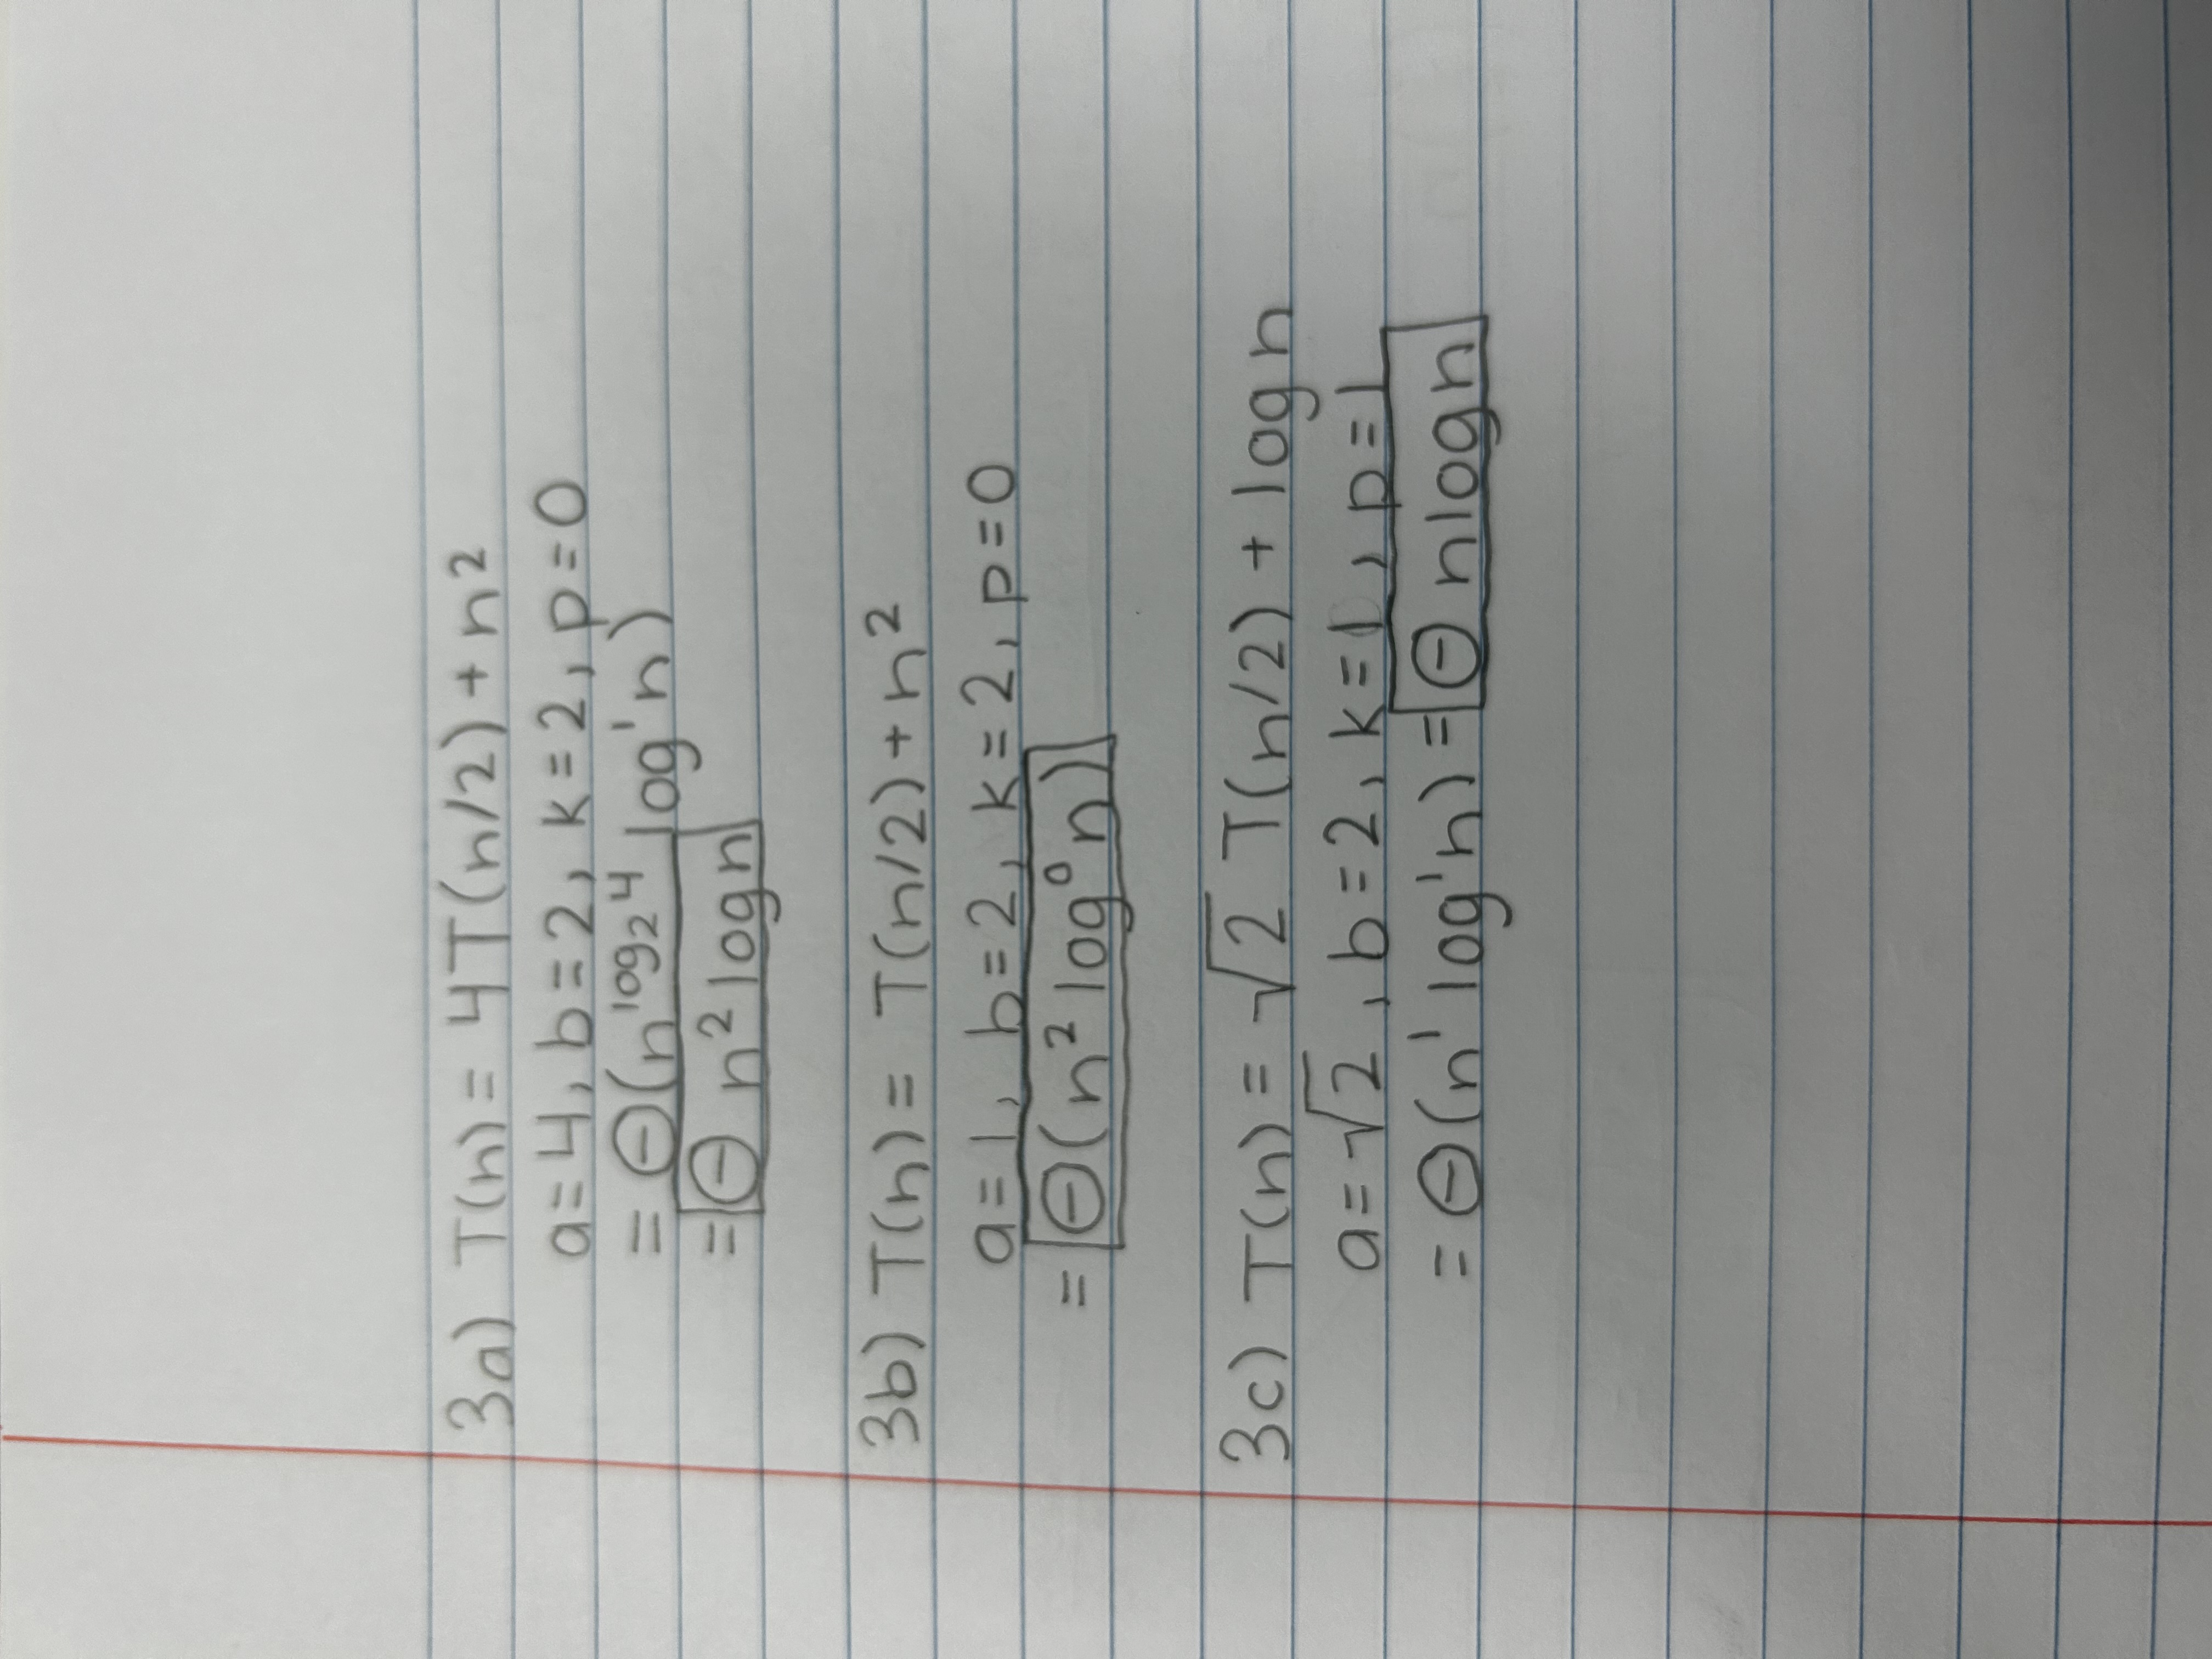 3a) T(n) = 4T(n/2) + n²
a=4, b=2, k=2, p=0
= Θ(n^log₂4 log¹n)
= Θ n² log n
3b) T(n) = T(n/2) + n²
a=1, b=2, k=2, p=0
= Θ(n² log⁰n)
3c) T(n) = √2 T(n/2) + log n
a=√2, b=2, k=1, p=1
= Θ(n¹ log¹n) = Θ nlogn